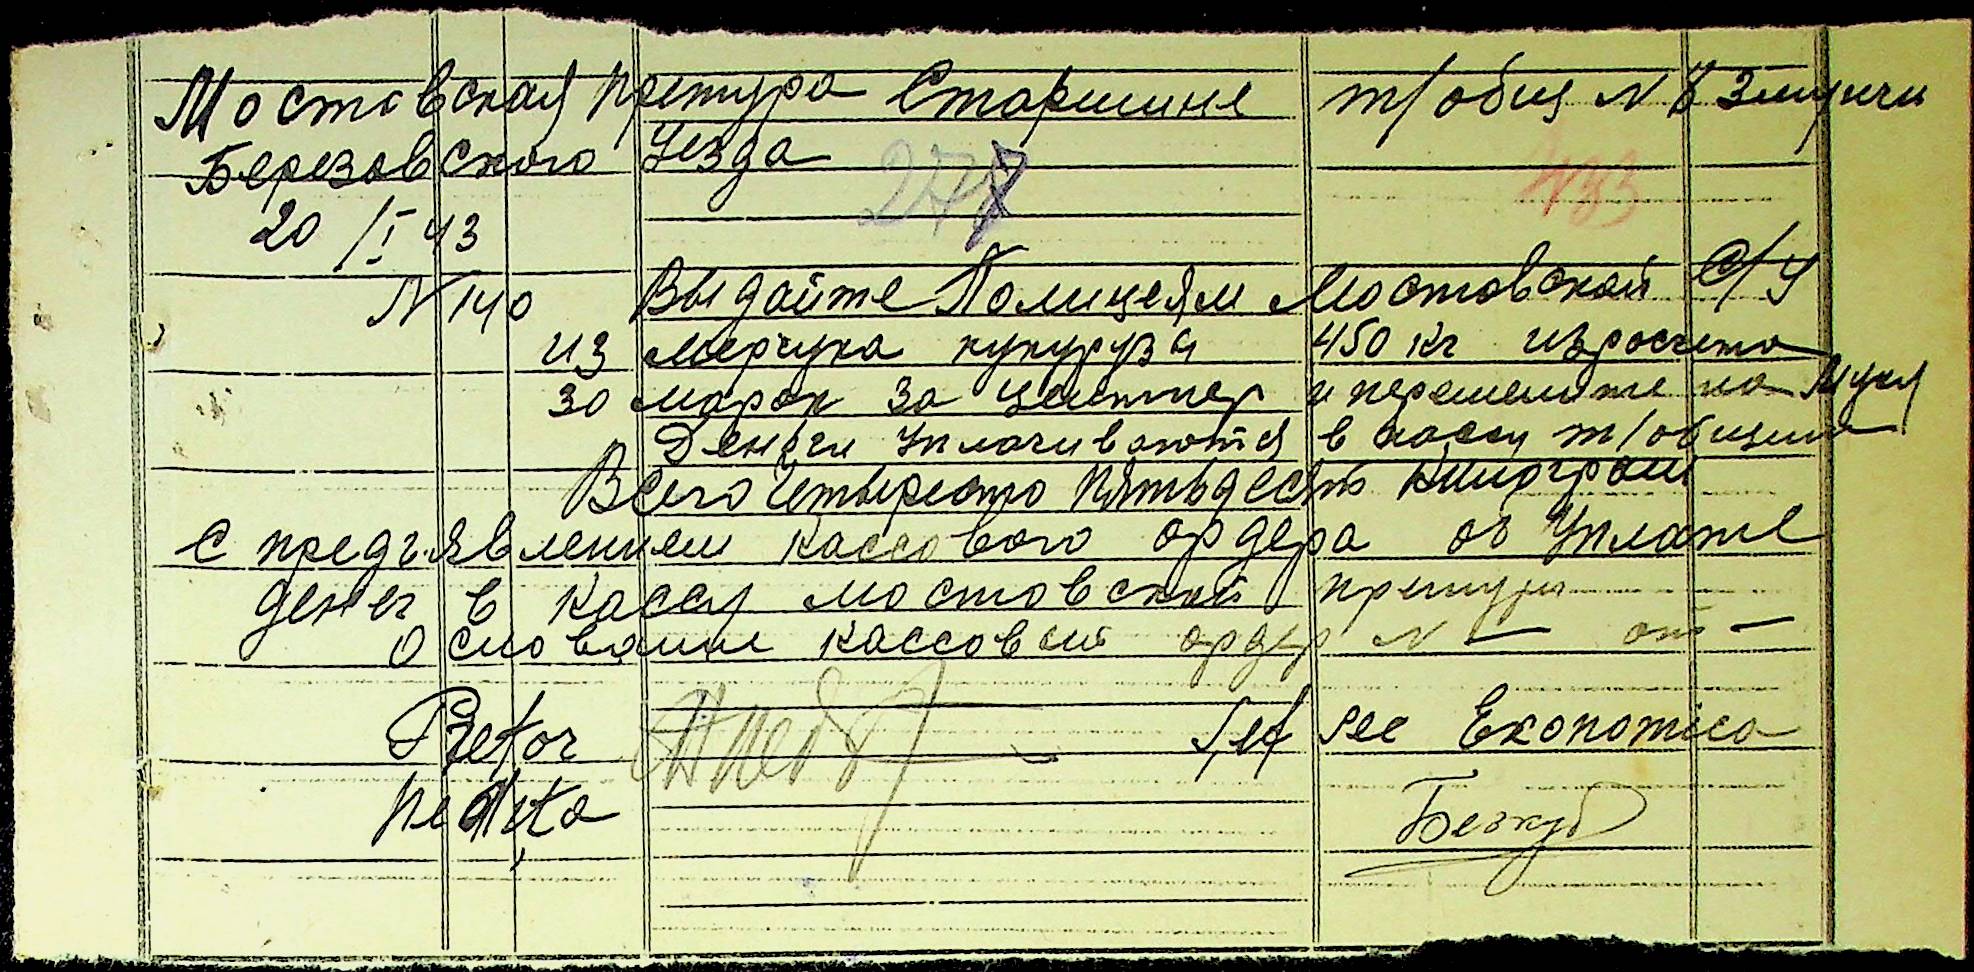 Мостовская претура Старшине т/общ N 8 Злидичи
Березовского Уезда
277
433
20/I 43
N 140 Выдайте Полицеям Мостовской С/У
из мерчука кукурузы 450 кг израсчета
30 марок за центнер и перемелите на муку
Деньги уплачиваются в кассу т/общины
Всего Четыреста пятьдесят килограм
с предъявлением кассового ордера об Уплате
денег в кассу мостовской претуры
Основание кассовый ордер N — от —
Pretor Șef sec Economica
Безкуб